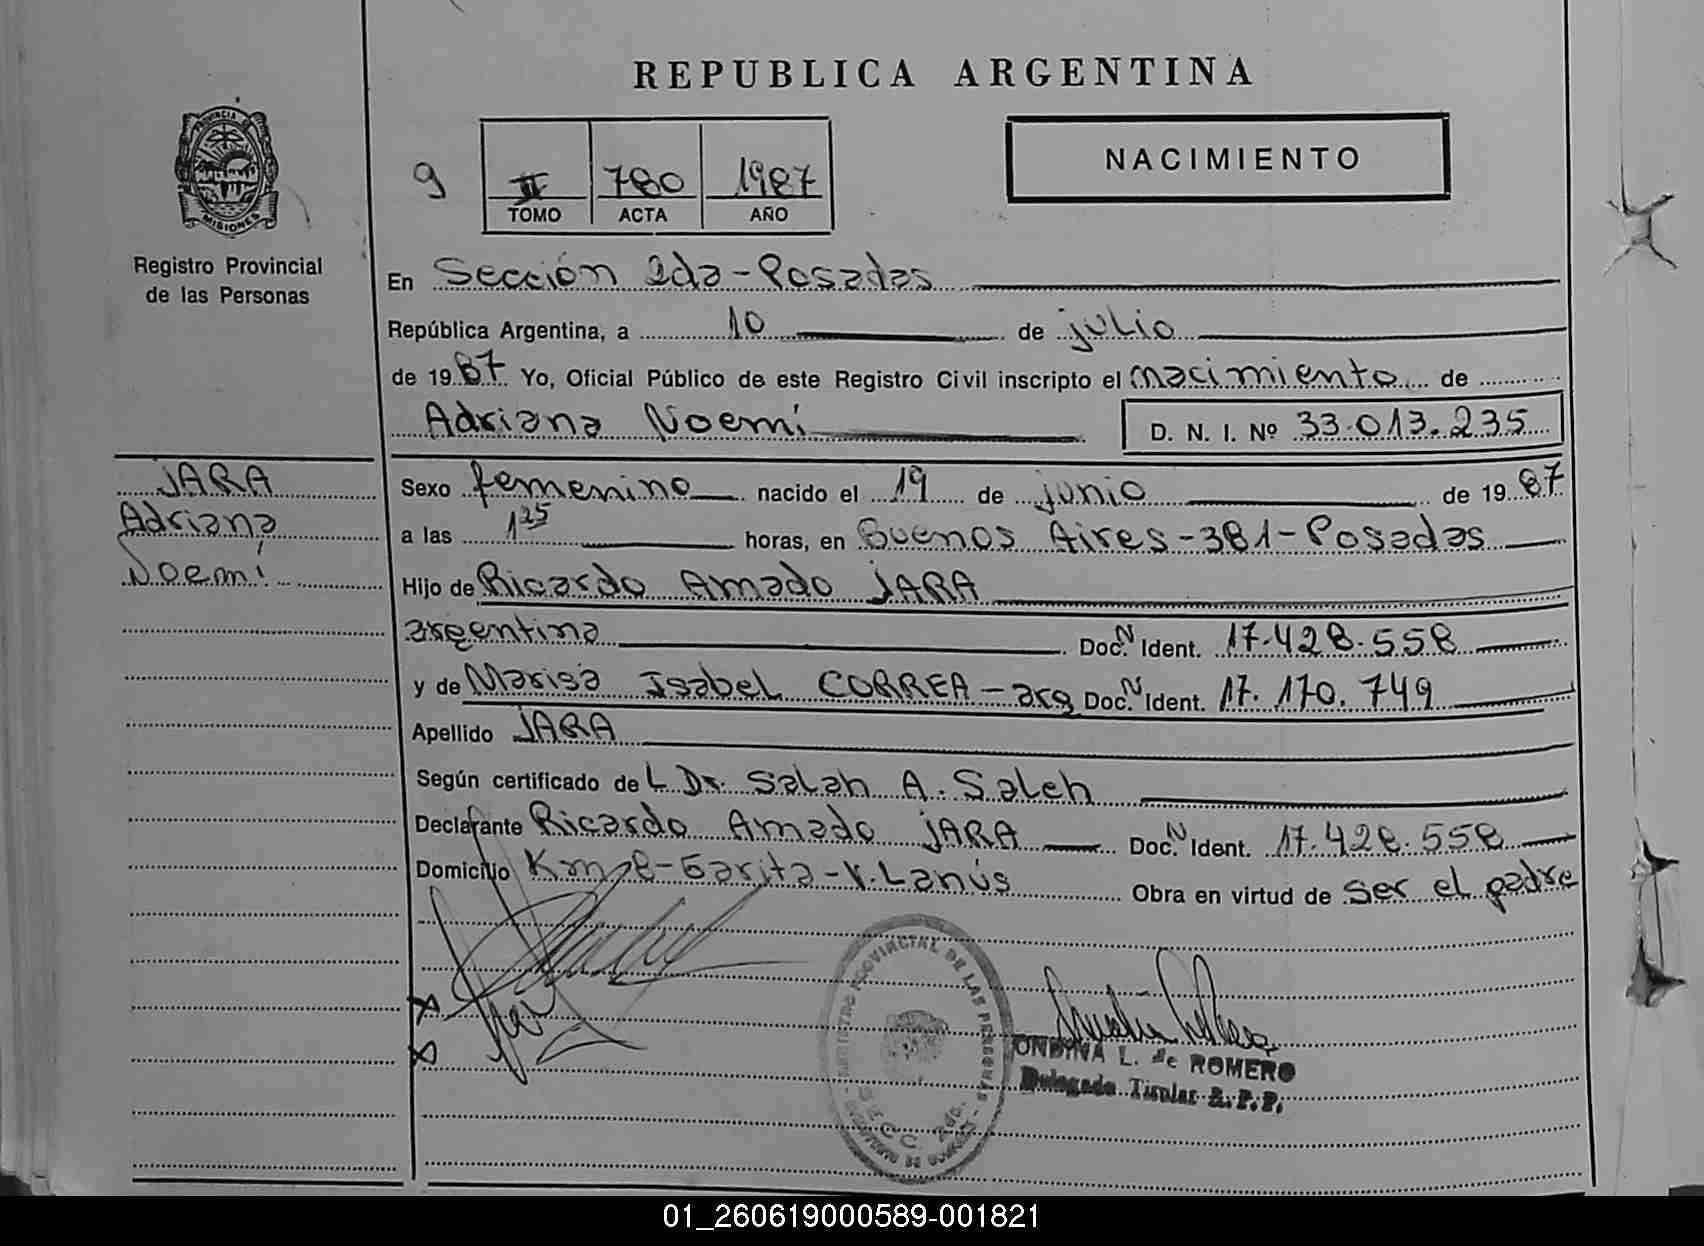 REPUBLICA ARGENTINA
PROVINCIA DE
MISIONES
Registro Provincial
de las Personas
9
II 780 1987
TOMO ACTA AÑO
NACIMIENTO
En Sección 2da-Posadas
República Argentina, a 10 de julio
de 1987 Yo, Oficial Público de este Registro Civil inscripto el nacimiento de
Adriana Noemí
D. N. I. Nº 33.013.235
JARA
Adriana
Noemí
Sexo femenino nacido el 19 de junio de 1987
a las 1 25 horas, en Buenos Aires-381-Posadas
Hijo de Ricardo Amado JARA
argentina Doc. N Ident. 17.428.558
y de Marisa Isabel CORREA-arg Doc. N Ident. 17.170.749
Apellido JARA
Según certificado de L Dr. Salah A. Saleh
Declarante Ricardo Amado JARA Doc. N Ident. 17.428.558
Domicilio Km 8-Garita-V.Lanús Obra en virtud de ser el padre
REGISTRO PROVINCIAL DE LAS PERSONAS
SECC. 2da.
ONDINA L. de ROMERO
Delegada Titular R.P.P.
01_260619000589-001821